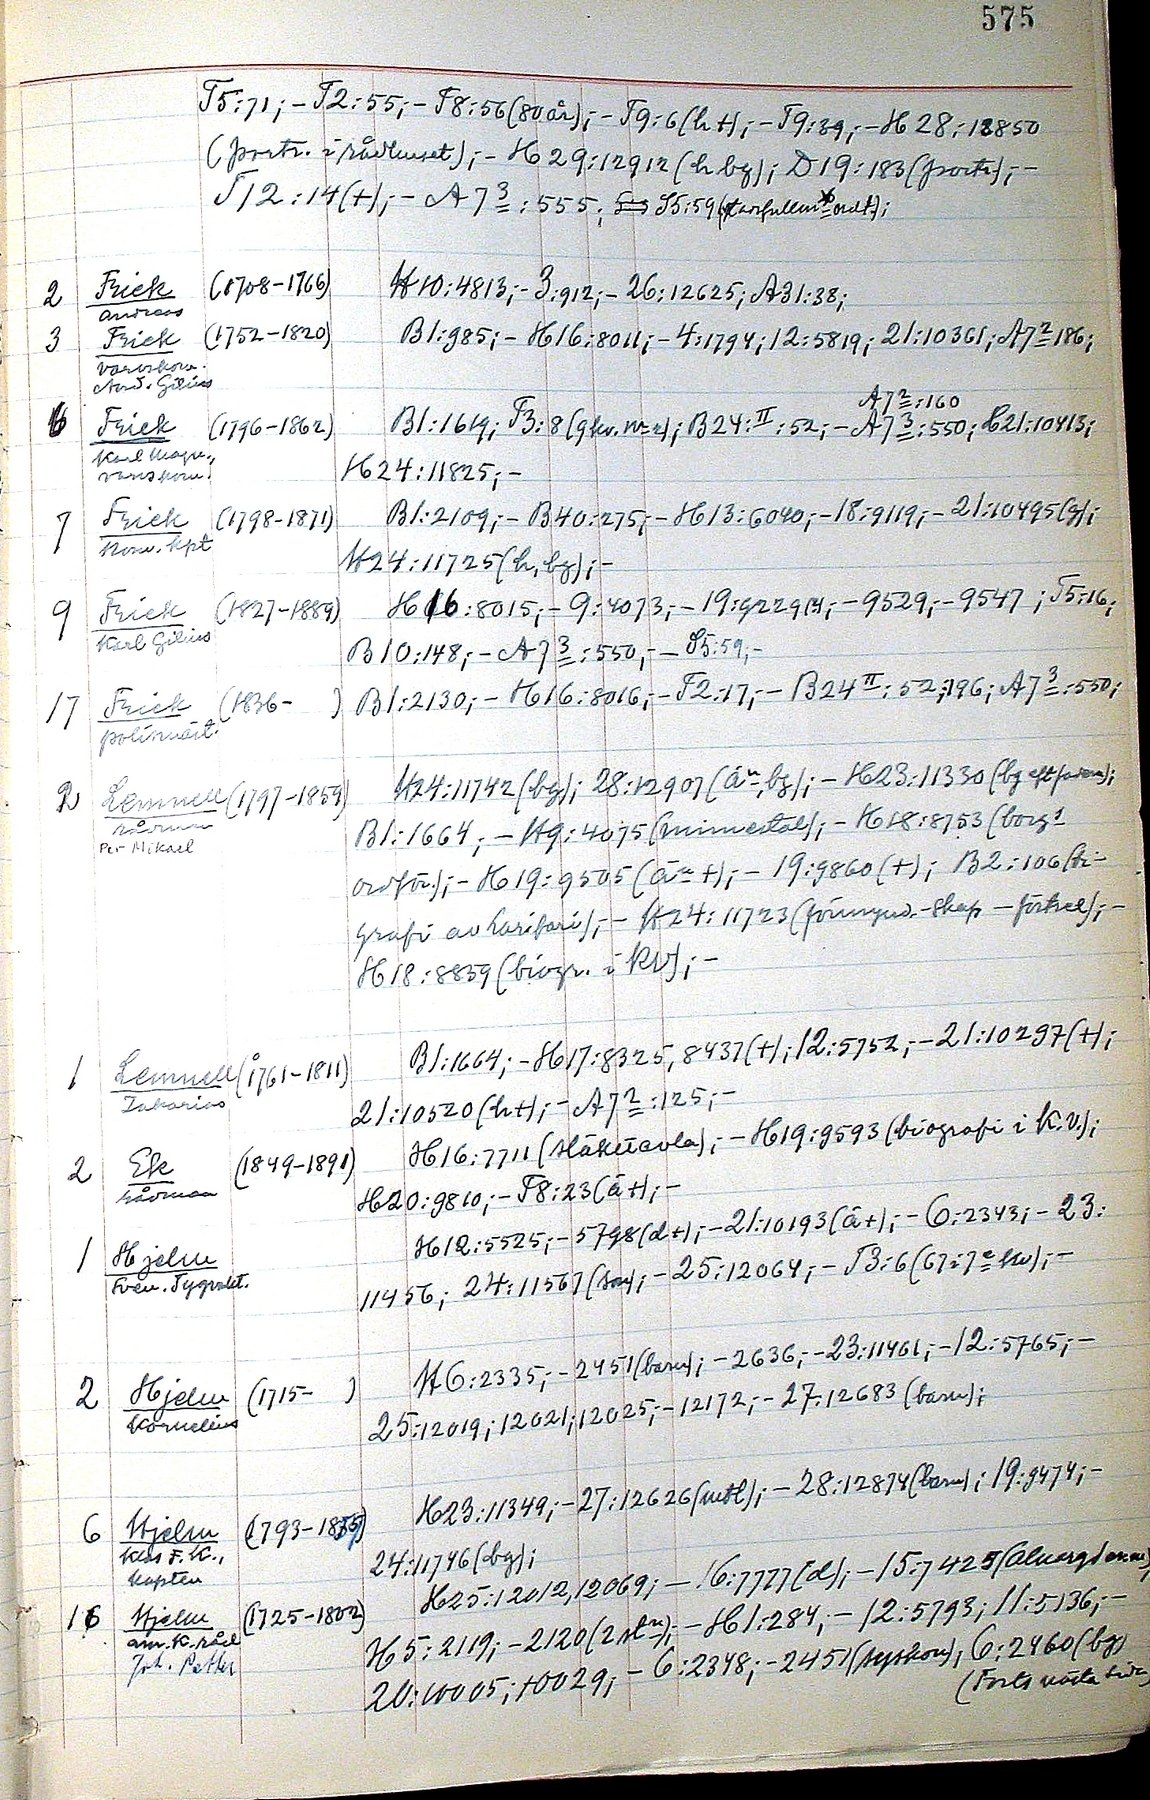 575
T5:71;- T2:55;- F8:56(80år);- T9:6(h+);- T9:39;- H28:12850
(portr. i rådhuset);- H29:12912(h bg); D19:183(portr);-
T12:14(+);- A7 3:555; S5:59
2 Frick (1708-1766) H10:4813;- 3:912;- 26:12625; A31:38;
Andreas
3 Frick (1752-1820) B1:985;- H16:8011;- 4:1794; 12:5819; 21:10361; A7 2 186;
varvskom.
And. Gilius
A7 2:160
6 Frick (1796-1862) B1:1619; T3:8(gkv. nr 2); B24:II:52;- A7 3:550; H21:10413;
Karl Magn.,
varvskom. H24:11825;-
7 Frick (1798-1871) B1:2109;- B40:275;- H13:6040;- 18:9119;- 21:10495(g);
Kom. kpt H24:11725(h, bg);-
9 Frick (1827-1889) H16:8015;- 9:4073;- 19:9229;- 9529;- 9547; T5:16;
Karl Gilius B10:148;- A7 3:550;- S5:59;-
17 Frick (1836- ) B1:2130;- H16:8016;- T2:17;- B24 II:52;196; A7 3:550;
polismäst.
2 Lemnell (1797-1859) H24:11742(bg); 28:12907(än, bg);- H23:11330(bg eft fadern);
rådman
Per Mikael B1:1664;- H9:4075(minnestal);- H18:8753(borg
ordför.);- H19:9505(än+);- 19:9860(+); B2:106(bi-
grafi av Harifari);- H24:11723(förmynd.-skap - förtrol);-
H18:8839(biogr. i KV);-
1 Lemnell (1761-1811) B1:1664;- H17:8325, 8437(+); 12:5752;- 21:10297(+);
Zakarias 21:10520(h+);- A7 2:125;-
2 Ek (1849-1891) H16:7711(släkttavla);- H19:9593(biografi i K.V.);
rådman H20:9810;- F8:23(ä+);-
1 Hjelm H12:5525;- 5798(d+);- 21:10193(ä+);- 6:2343;- 23:
Sven. Tygvakt. 11456; 24:11567(son);- 25:12064;- T3:6(67 i 7e kv);-
2 Hjelm (1715- ) H6:2335;- 2451(barn);- 2636;- 23:11461;- 12:5765;-
Kornelius 25:12019; 12021; 12025;- 12172;- 27:12683(barn);
6 Hjelm (1793-1855) H23:11349;- 27:12626(utl);- 28:12874(barn); 19:9474;-
Klas F. K.,
kapten 24:11746(bg);
16 Hjelm (1725-1802) H25:12012, 12069;- 16:7777(d);- 15:7425
am.k. råd H5:2119;- 2120(2 st);- H1:284;- 12:5793; 11:5136;-
Joh. Petter 20:10005; 10029;- 6:2348;- 2451(syskon), 6:2460(bg)
(Forts nästa sida)